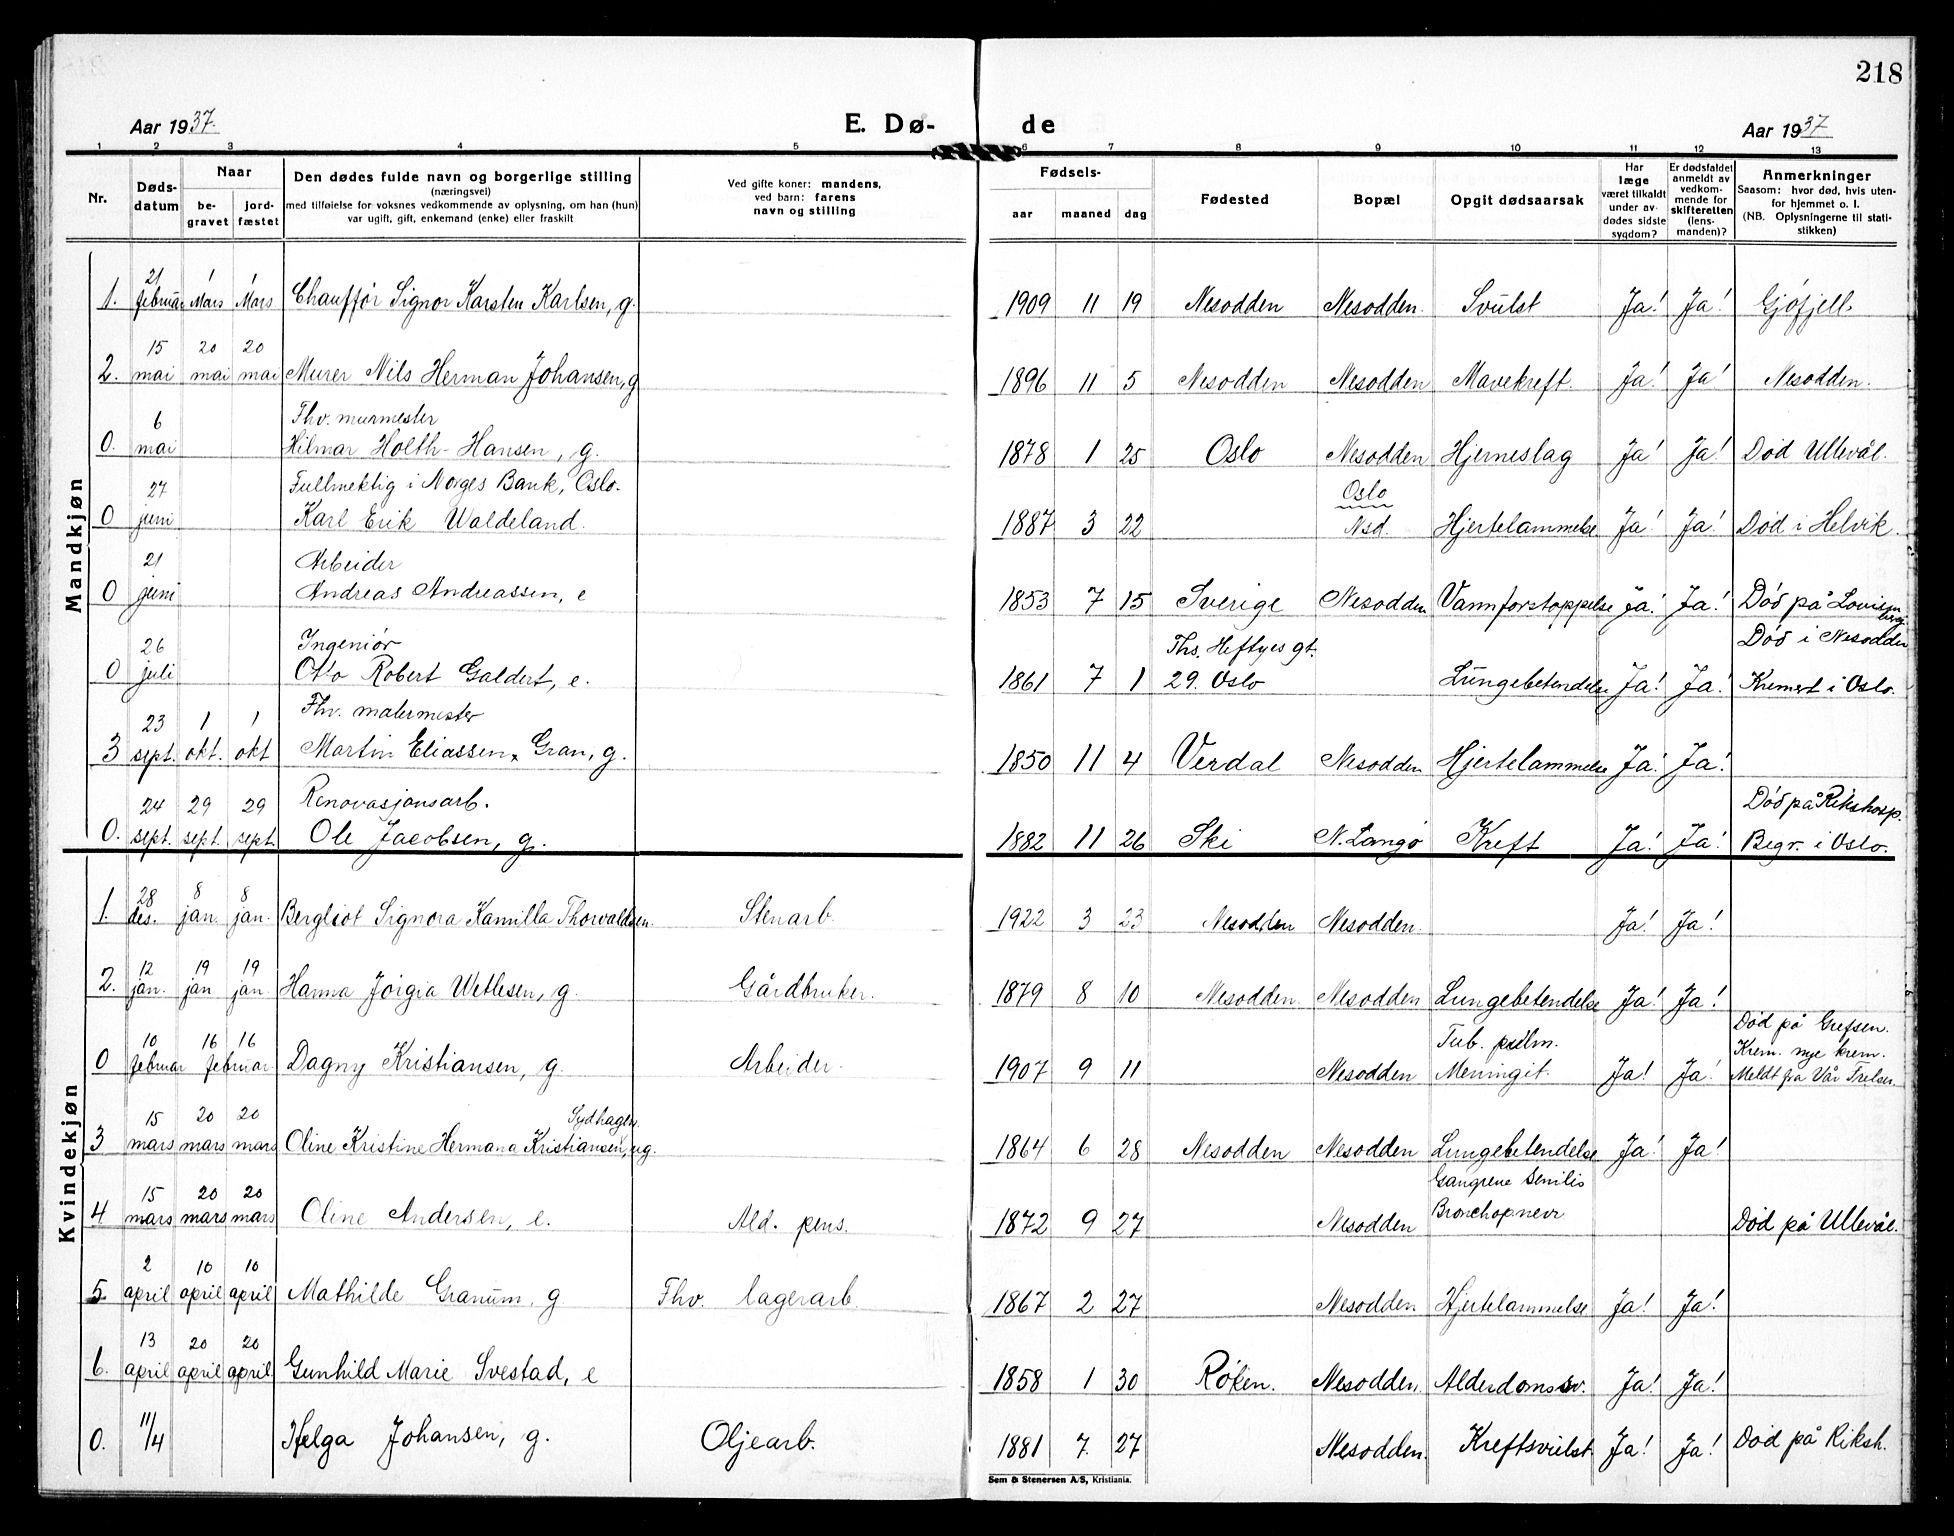 218
Aar 1937.
E. Dø-
de
Aar 1937
1 2 3 4 5 6 7 8 9 10 11 12 13
Nr.
Døds-
datum
Naar
be-
gravet
jord-
fæstet
Den dødes fulde navn og borgerlige stilling
(næringsvei)
med tilføielse for voksnes vedkommende av oplysning, om han (hun)
var ugift, gift, enkemand (enke) eller fraskilt
Ved gifte koner: mandens,
ved barn: farens
navn og stilling
Fødsels-
aar maaned dag
Fødested
Bopæl
Opgit dødsaarsak
Har
læge
været tilkaldt
under av-
dødes sidste
sygdom?
Er dødsfaldet
anmeldt av
vedkom-
mende for
skifteretten
(lens-
manden)?
Anmerkninger
Saasom: hvor død, hvis uten-
for hjemmet o. l.
(NB. Oplysningerne til stati-
stikken)
Mandkjøn
21 1 1
1. februar Mars Mars Chauffør Signor Karsten Karlsen, g. 1909 11 19 Nesodden Nesodden. Svulst Ja! Ja! Gjøfjell.
15 20 20
2. mai mai mai Murer Nils Herman Johansen, g 1896 11 5 Nesodden Nesodden Mavekreft. Ja! Ja! Nesodden.
6 Fhv. murmester
0. mai Hilmar Holth-Hansen, g. 1878 1 25 Oslo Nesodden Hjerneslag Ja! Ja! Død Ullevål.
27 Fullmektig i Norges Bank, Oslo. Oslo
0 juni Karl Erik Waldeland. 1887 3 22 Nsd. Hjertelammelse Ja! Ja! Død i Helvik.
21 Arbeider
0 juni Andreas Andreassen, e 1853 7 15 Sverige Nesodden Vannforstoppelse Ja! Ja! Død på Lovisen
berg
26 Ingeniør Ths. Heftyes gt. Død i Nesodden
0 juli Otto Robert Galdert, e. 1861 7 1 29. Oslo Lungebetendelse Ja! Ja! Kremert i Oslo.
23 1 1 Fhv. malermester
3 sept. okt. okt Martin Eliassen Gran, g. 1850 11 4 Verdal Nesodden Hjertelammelse Ja! Ja!
24 29 29 Renovasjonsarb. Død på Rikshosp.
0. sept. sept. sept. Ole Jacobsen, g. 1882 11 26 Ski N. Langø Kreft Ja! Ja! Begr. i Oslo.
Kvindekjøn
28 8 8
1. des. jan. jan. Bergliot Signora Kamilla Thorvaldsen. Stenarb. 1922 3 23 Nesodden Nesodden. Ja! Ja!
12 19 19
2. jan. jan jan. Hanna Jørgia Wetlesen, g. Gårdbruker. 1879 8 10 Nesodden. Nesodden Lungebetendelse Ja! Ja!
10 16 16 Tub. pulm. Død på Grefsen.
Krem. nye krem.
0 februar februar. Dagny Kristiansen, g. Arbeider. 1907 9 11 Nesodden Meningit. Ja! Ja! Meldt fra Vår Frelser
15 20 20 Sydhagen.
3 mars mars mars Oline Kristine Hermana Kristiansen, ug. 1864 6 28 Nesodden Nesodden Lungebetendelse Ja! Ja!
15 20 20 Gangrene Senilis
4 mars mars mars Oline Andersen, e. Ald. pens. 1872 9 27 Nesodden Bronchopneu Død på Ullevål.
2 10 10
5. april april april Mathilde Granum, g. Fhv. lagerarb. 1867 2 27 Nesodden Hjertelammelse Ja! Ja!
13 20 20
6. april april april. Gunhild Marie Svestad, e 1858 1 30 Røken. Nesodden. Alderdomssv. Ja! Ja!
0. 11/4 Helga Johansen, g. Oljearb. 1881 7. 27 Nesodden. Kreftsvulst Ja! Ja! Død på Riksh.
Sem & Stenersen A/S, Kristiania.